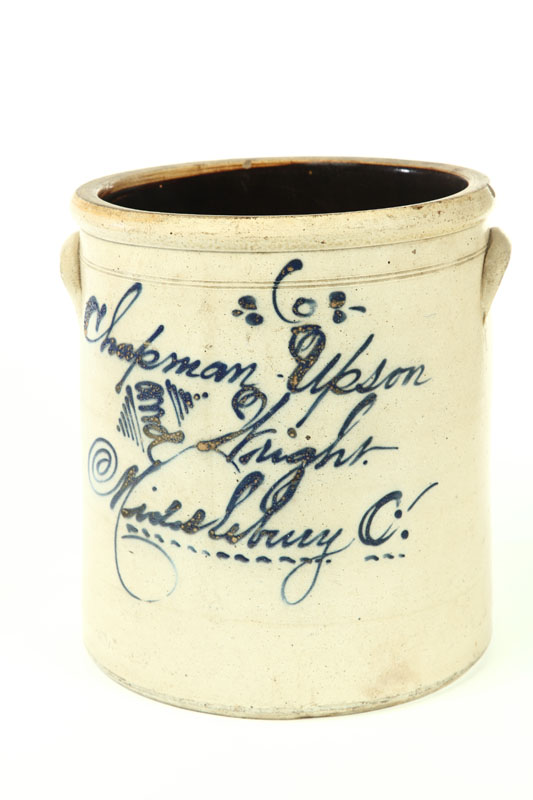 6
Chapman Upson
and Wright.
Middlebury O.